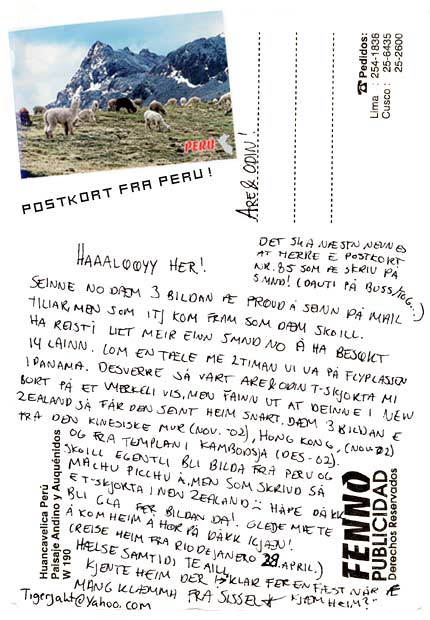 PERU
POSTKORT FRA PERU!
ARE & ODIN!
Pedidos:
Lima : 254-1836
Cusco : 25-6435
25-2600
DET SKA NÆSTN NEVNES
AT HERRE E POSTKORT
NR. 85 SOM Æ SKRIV PÅ
5MND! (DAUTI PÅ BUSS/TOG...)
HAAALOOOYY HER!
SEINNE NO DÆM 3 BILDAN Æ PROVD Å SEINN PÅ MAIL
TILIAR, MEN SOM ITJ KOM FRAM SOM DÆM SKOILL.
HA REIST I LITT MEIR EINN 5MND NO Å HA BESØKT
14 LAINN. LOM EN TÆLE ME 2 TIMAN VI VA PÅ FLYPLASSEN
I PANAMA. DESVERRE SÅ VART ARE & ODIN T-SKJORTA MI
BORT PÅ ET MERKELI VIS, MEN FAINN UT AT DEINNE I NEW
ZEALAND SÅ FÅR DEN SEINT HEIM SNART. DÆM 3 BILDAN E
FRA DEN KINESISKE MUR (NOV. -02), HONG KONG, (NOV-02)
OG FRA TEMPLAN I KAMBODSJA (DES-02).
SKOILL EGENTLI BLI BILDA FRA PERU OG
MACHU PICCHU Å, MEN SOM SKRIVD SÅ
E T-SKJORTA I NEW ZEALAND :( HÅPE DÅKK
BLI GLA FER BILDAN DA! GLEDE MÆ TE
Å KOM HEIM Å HØR PÅ DÅKK IGJÆN!
(REISE HEIM FRA RIO DE JANERO 28. APRIL.)
HÆLSE SAMTIDI TE AILL
KJENTE HEIM DER! KLAR FER EN FÆST NÅR Æ
KJÆM HEIM?
MANG KLÆMMA FRA SISSEL
Tigerjakt@yahoo.com
Huancavelica Perú
Paisaje Andino y Auquénidos
W 190
FENNO
PUBLICIDAD
Derechos Reservados